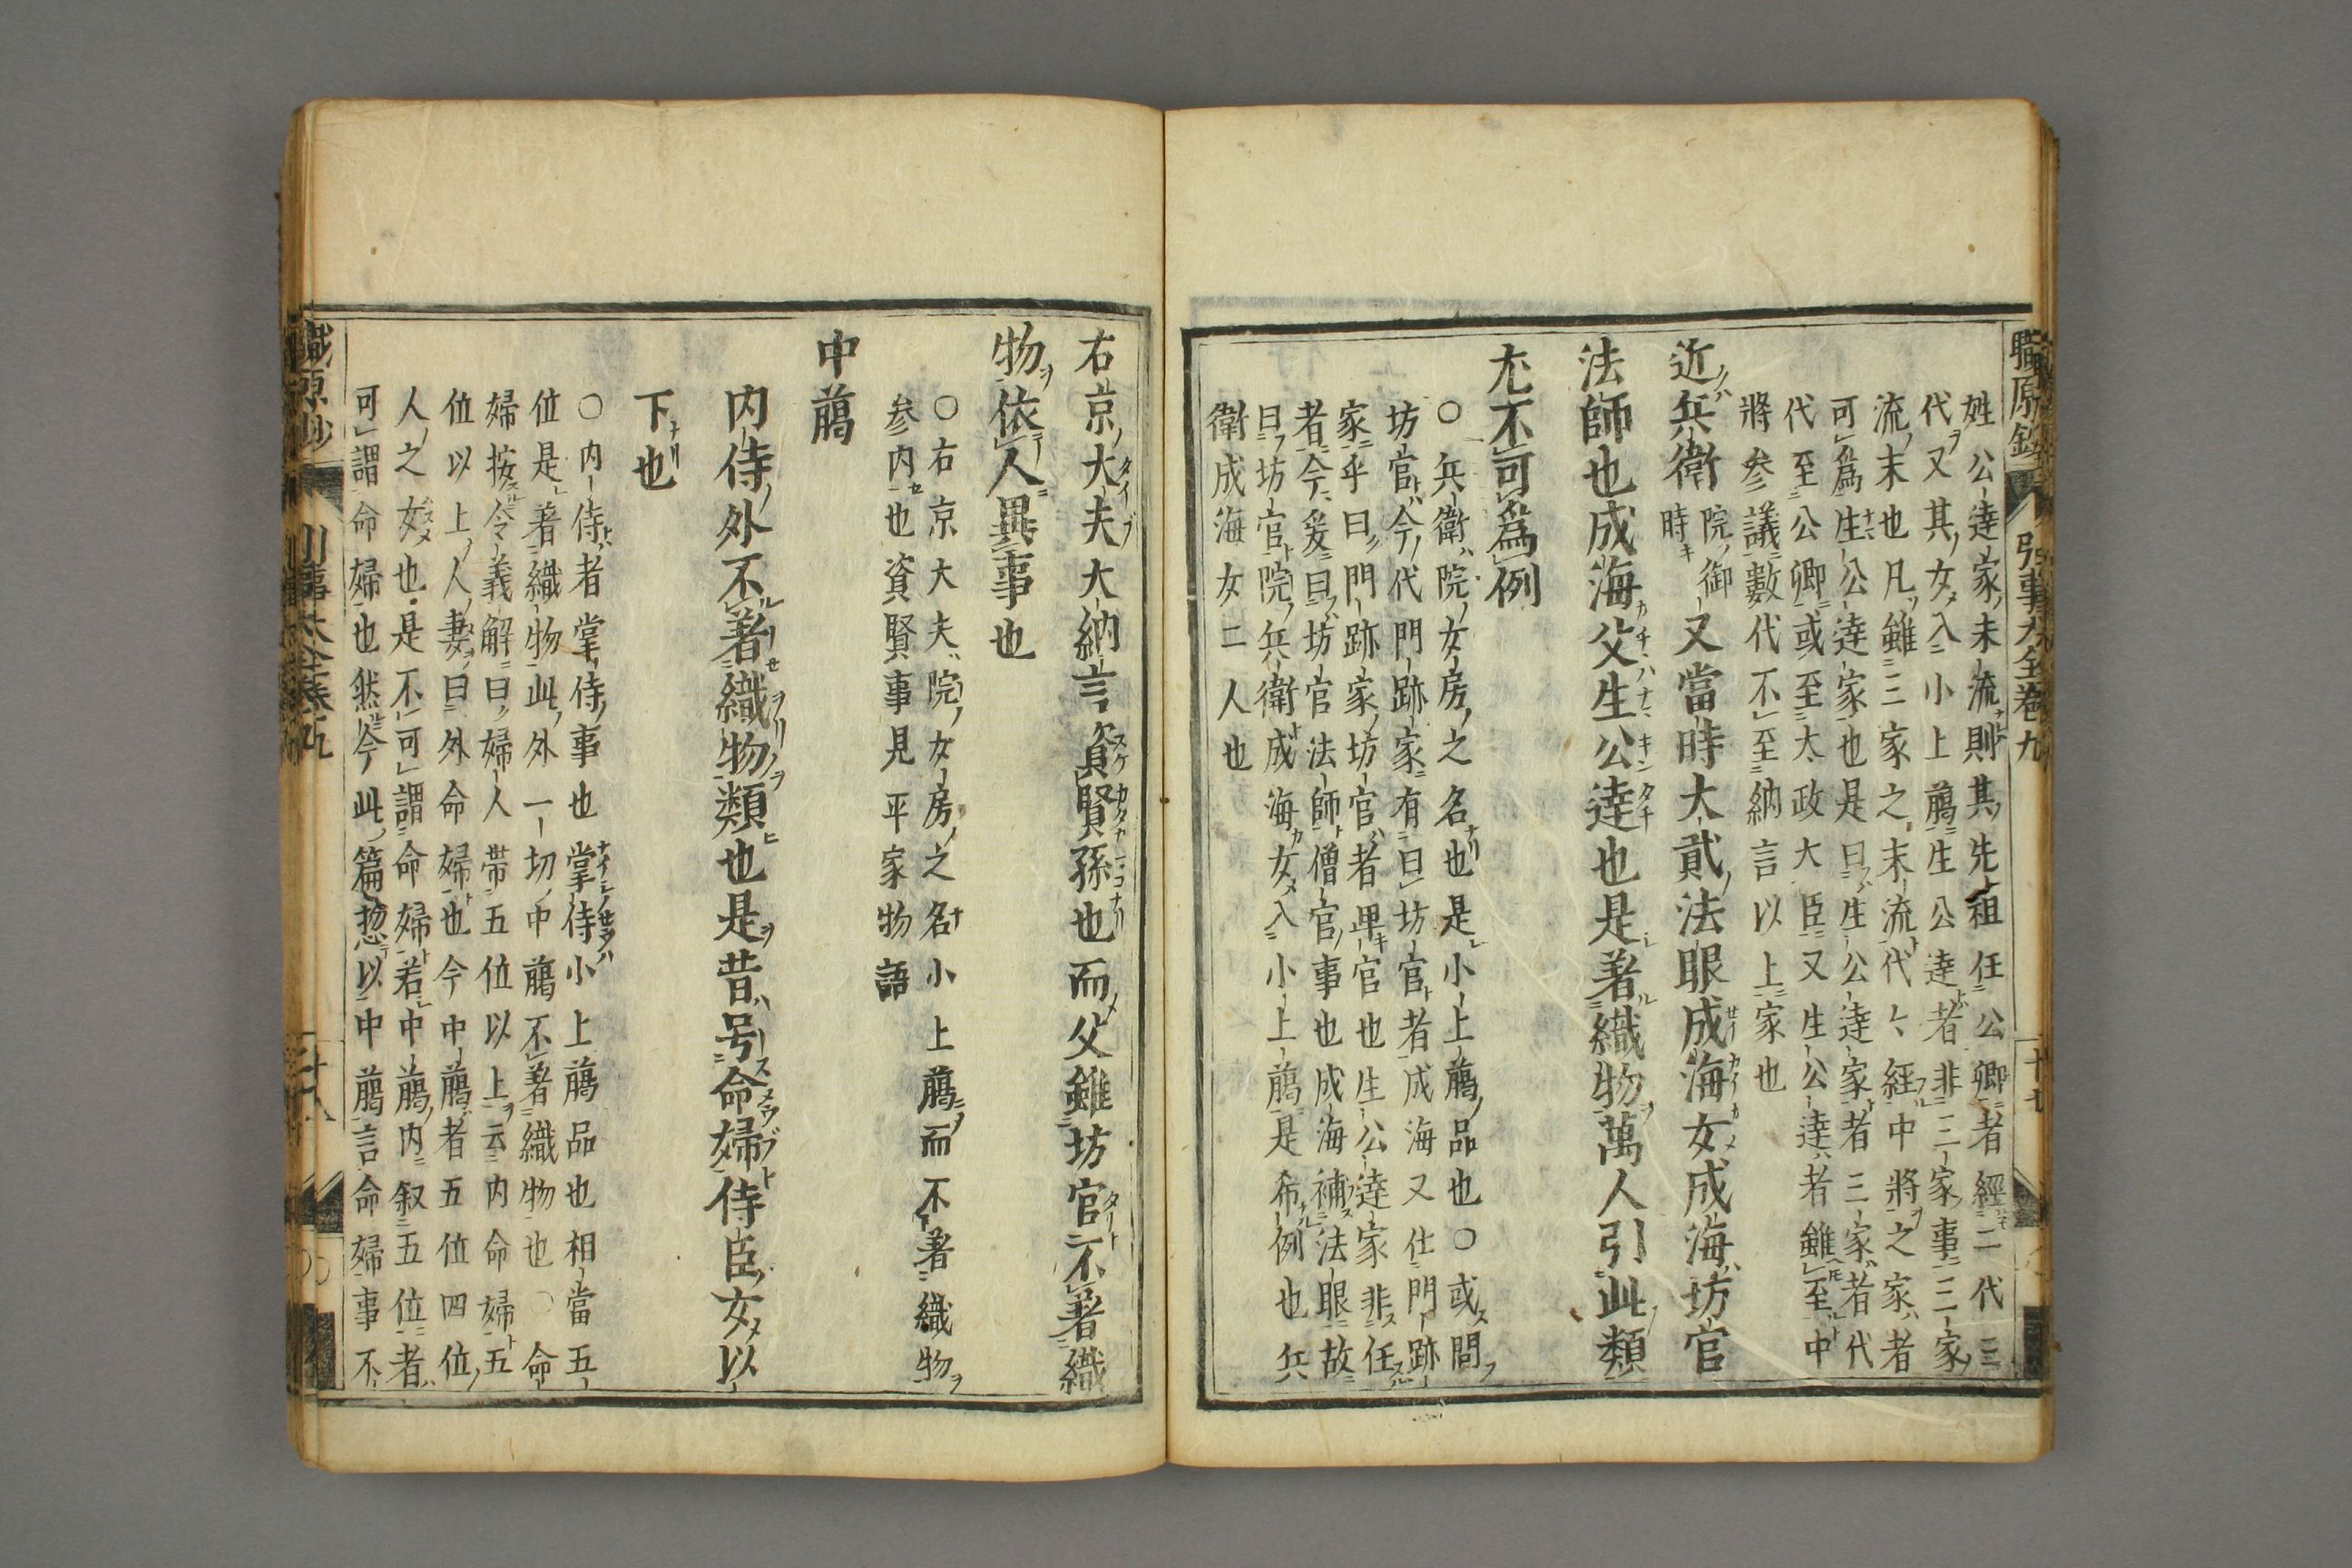 職原鈔 引事大全卷九 十七
姓公達家ノ末流則其先祖任公卿者經二代三
代又其女入小上﨟生公達者非三家事三家ノ
流末也凡雖三家之末流代々經中將之家者
可爲生公達家也是曰生公達家者三家者代
代至公卿或至太政大臣又生公達者雖至中
將参議數代不至納言以上家也
近兵衛 院御時 又當時大貳法眼成海女成海坊官
法師也成海父生公達也是著織物萬人引此類
尤不可爲例
○兵衛院ノ女房之名也是小上﨟品也○或問
坊官今代門跡家有曰坊官者成海又仕門跡
家乎曰門跡家坊官者卑官也生公達家非任
者今爰曰坊官法師僧官事也成海補法眼故
曰坊官院兵衛成海女入小上﨟是希例也兵
衛成海女二人也
右京大夫大納言資賢孫也而父雖坊官不著織
物依人異事也
○右京大夫院ノ女房之名小上﨟而不著織物
参内也資賢事見平家物語
中﨟
内侍外不著織物類也是昔号命婦侍臣女以
下也
○内侍者掌侍事也掌侍小上﨟品也相當五
位是著織物此外一切中﨟不著織物也○命
婦按令義解曰婦人帶五位以上云内命婦五
位以上人妻曰外命婦也今中﨟者五位四位
人之女也是不可謂命婦若中﨟内叙五位者
可謂命婦也然今此篇惣以中﨟言命婦事不
職原鈔 引事大全卷九 十八